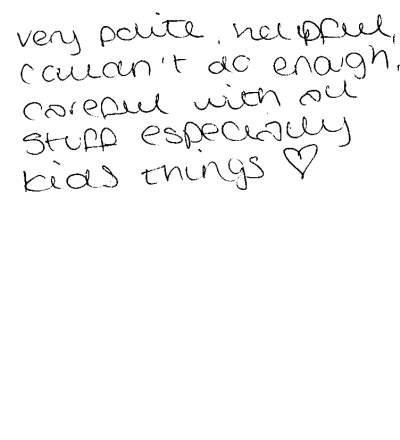 very polite, helpful,
couldn't do enough.
careful with all
stuff especially
kids things ♡